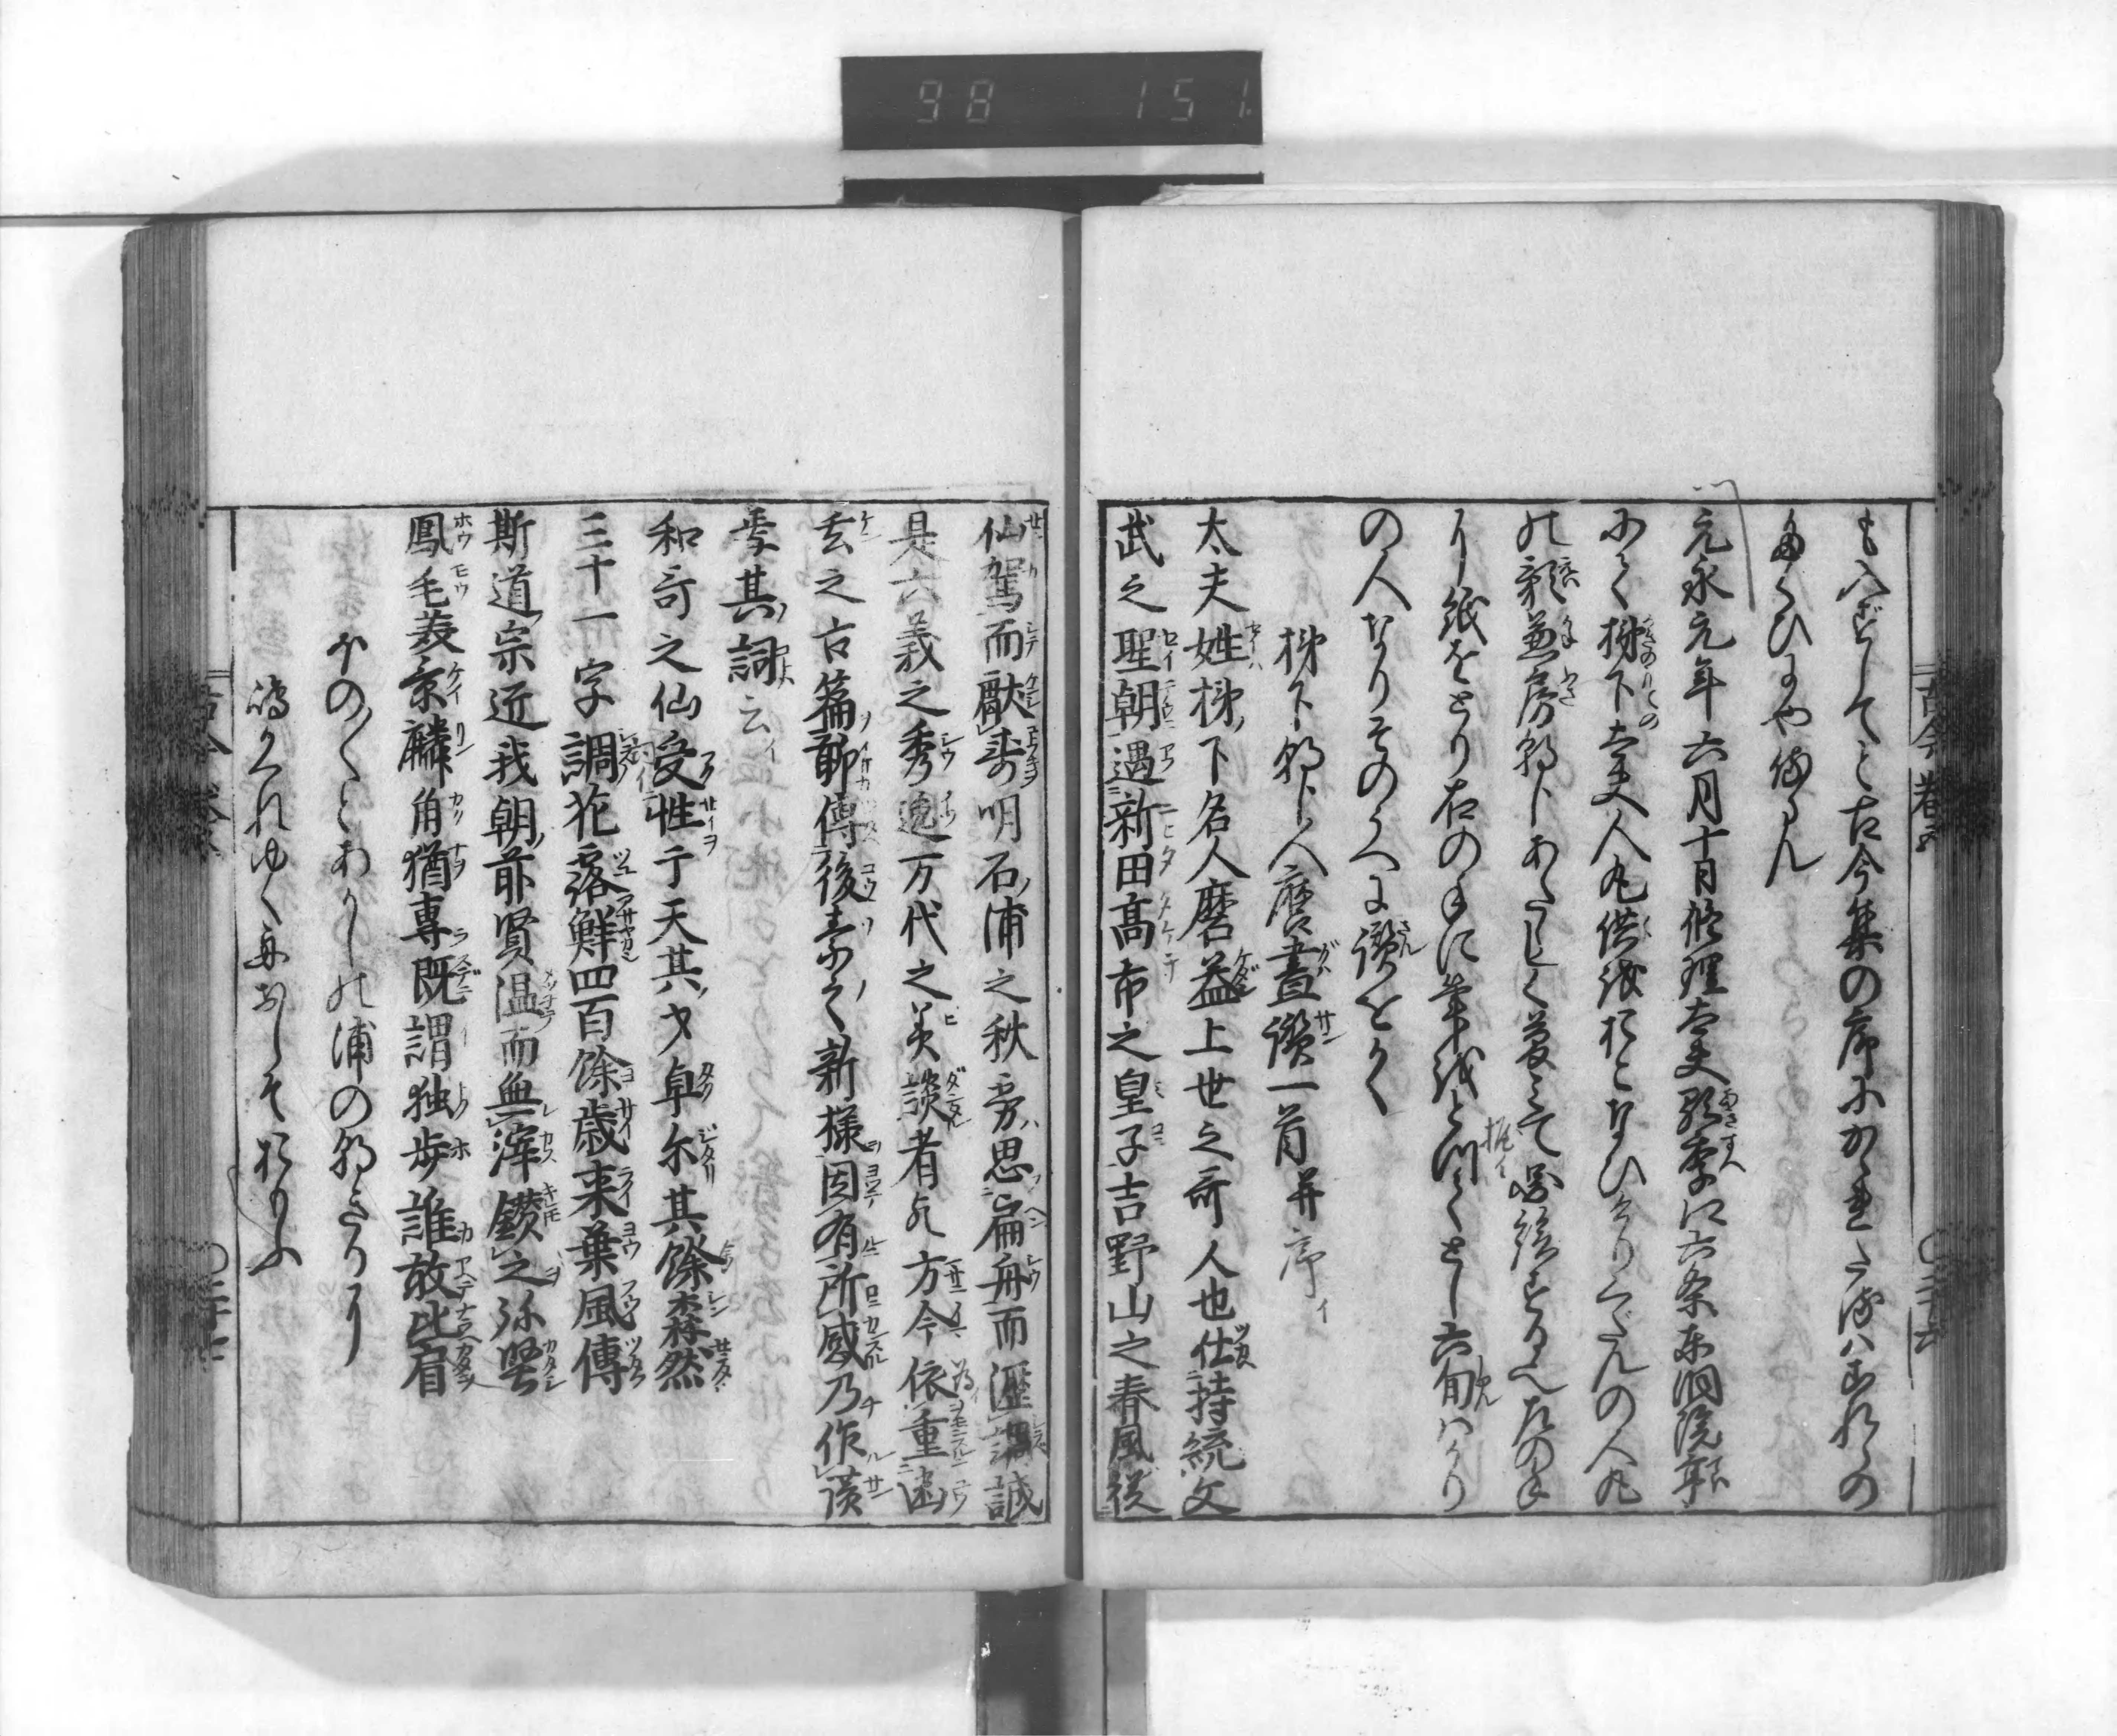 98 151
も入ずしてと古今集の序にかきたるはこれらの
たくひにや侍らん
元永元年六月十日修理大夫顕季に六条東洞院亭
にて柿下大夫人丸供をおこなひけりくだんの人丸
の影兼房朝臣あたらしく夢みて図絵するべ左の手
に紙をとり右の手に筆をとりてとし六旬ばかり
の人なりそのうへに讃をかく
柿下朝臣人麿畫讃一首并序イ
太夫姓柿下名人麿蓋上世之哥人也仕持統文
武之聖朝遇新田高市之皇子吉野山之春風従
仙駕而獻壽明石浦之秋霧思扁舟而瀝詞誠
是六義之秀逸万代之美談者歟方今依重幽
玄之古篇聊傳後素之新様因有所感乃作讃
焉其詞云イ
和哥之仙受性于天其才卓尓其餘森然
三十一字調花露鮮四百餘歳来葉風傳
斯道宗近我朝前賢温而無滓鑚之弥堅
鳳毛美景麟角猶專既謂独歩誰敢比肩
ほの〱とあかしの浦の朝きりに
嶋かくれゆく舟おしそおもふ
古今 巻五